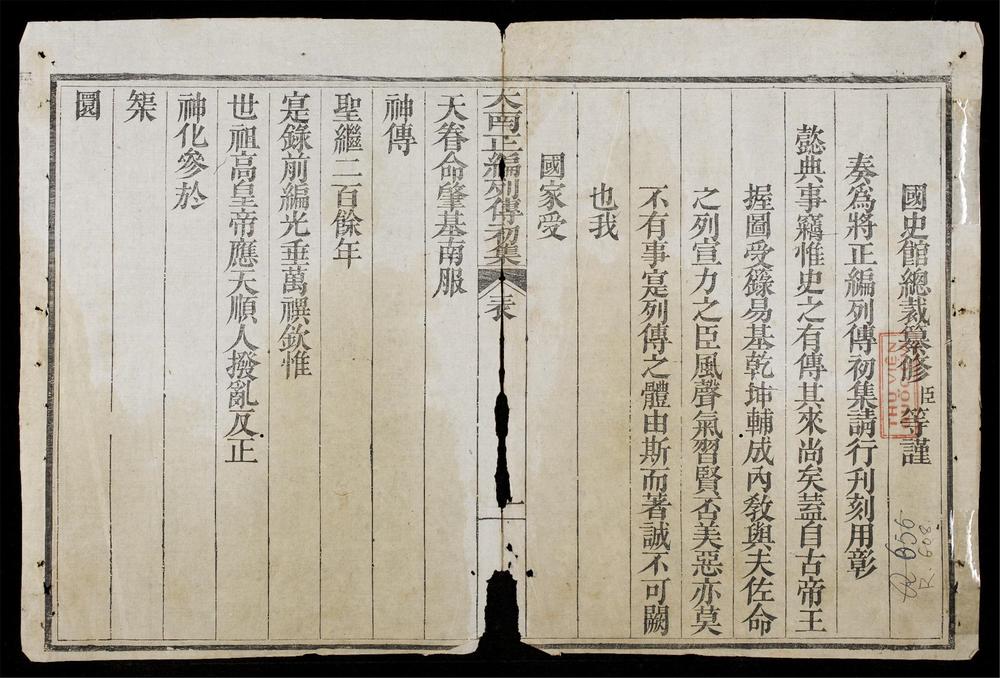 國史館總裁纂修臣等謹
奏爲將正編列傳初集請行刊刻用彰
懿典事竊惟史之有傳其來尚矣蓋自古帝王
握圖受籙易基乾坤輔成內敎與夫佐命
之列宣力之臣風聲氣習賢否美惡亦莫
不有事寔列傳之體由斯而著誠不可闕
也我
國家受
大南正編列傳初集 表 一
天眷命肇基南服
神傳
聖繼二百餘年
寔錄前編光垂萬禩欽惟
世祖高皇帝應天順人撥亂反正
神化參於
榘
圜
THU VIEN
A 656
R. 608